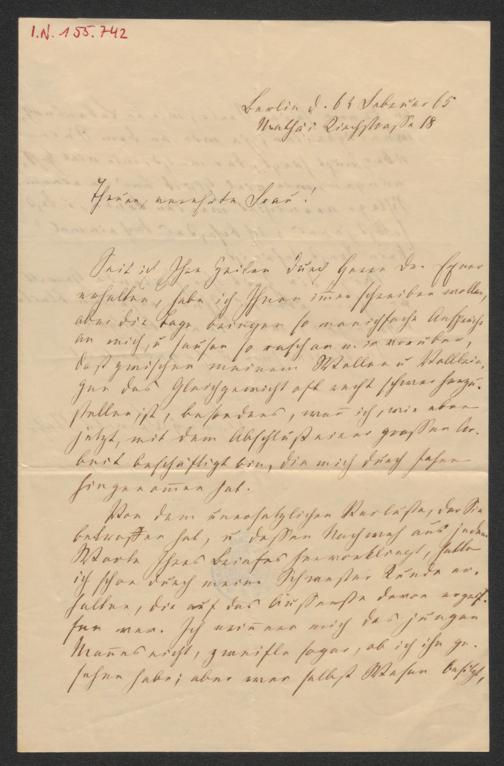 I.N. 155.742
Berlin d. 6t Februar 65
Mathäi Kirchstrasse 18
Theure, verehrte Frau!
Seit ich Ihre Zeilen durch Herrn Dr. Exner
erhalten, habe ich Ihnen immer schreiben wollen,
aber die Tage bringen so manichfache Ansprüche
an mich, u sausen so rasch an mir vorüber,
daß zwischen meinem Wollen u Vollbrin-
gen das Gleichgewicht oft recht schwer herzu-
stellen ist, besonders, wenn ich, wie eben
jetzt, mit dem Abschluß einer grossen Ar-
beit beschäftigt bin, die mich durch Jahre
hingenommen hat.
Von dem unersetzlichen Verluste, der Sie
betroffen hat, u dessen Nachweh aus jedem
Worte Ihres Briefes hervorklingt, hatte
ich schon durch meine Schwester Kunde er-
halten, die auf das Äusserste davon ergrif-
fen war. Ich erinnere mich des jungen
Mannes nicht, zweifle sogar, ob ich ihn ge-
sehen habe; aber wer selbst Wesen besitzt,